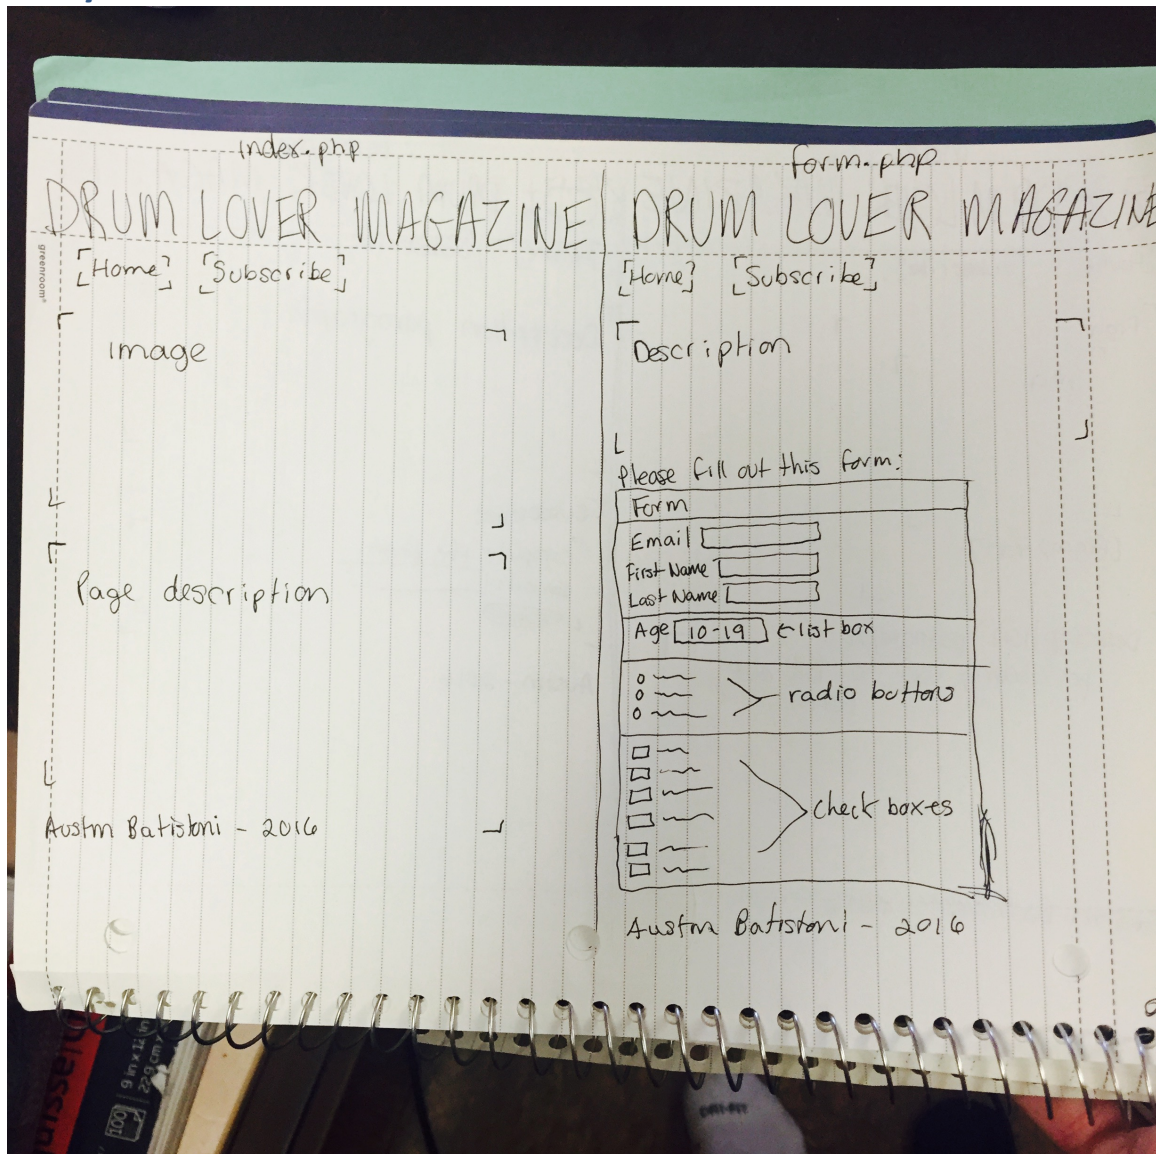 index.php
DRUM LOVER MAGAZINE
greenroom
[Home] [Subscribe]
Image
Page description
Austin Batistoni - 2016
form.php
DRUM LOVER MAGAZINE
[Home] [Subscribe]
Description
Please fill out this form:
Form
Email
First Name
Last Name
Age 10-19 ← list box
radio buttons
check boxes
Austin Batistoni - 2016
100
9 in x 12 in
22.9 cm x
DRI-FIT